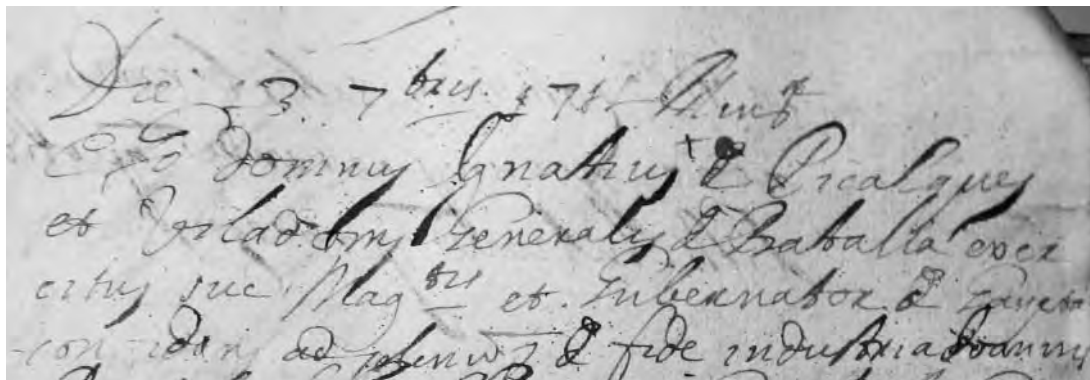 Die 23. 7bris. 171
Ego dominus Ignatius de Picalques
et Vilad Generalis de Batalla exer
citus sue Magtis et Gubernator de
confidens ad plenum de fide industria Joannis